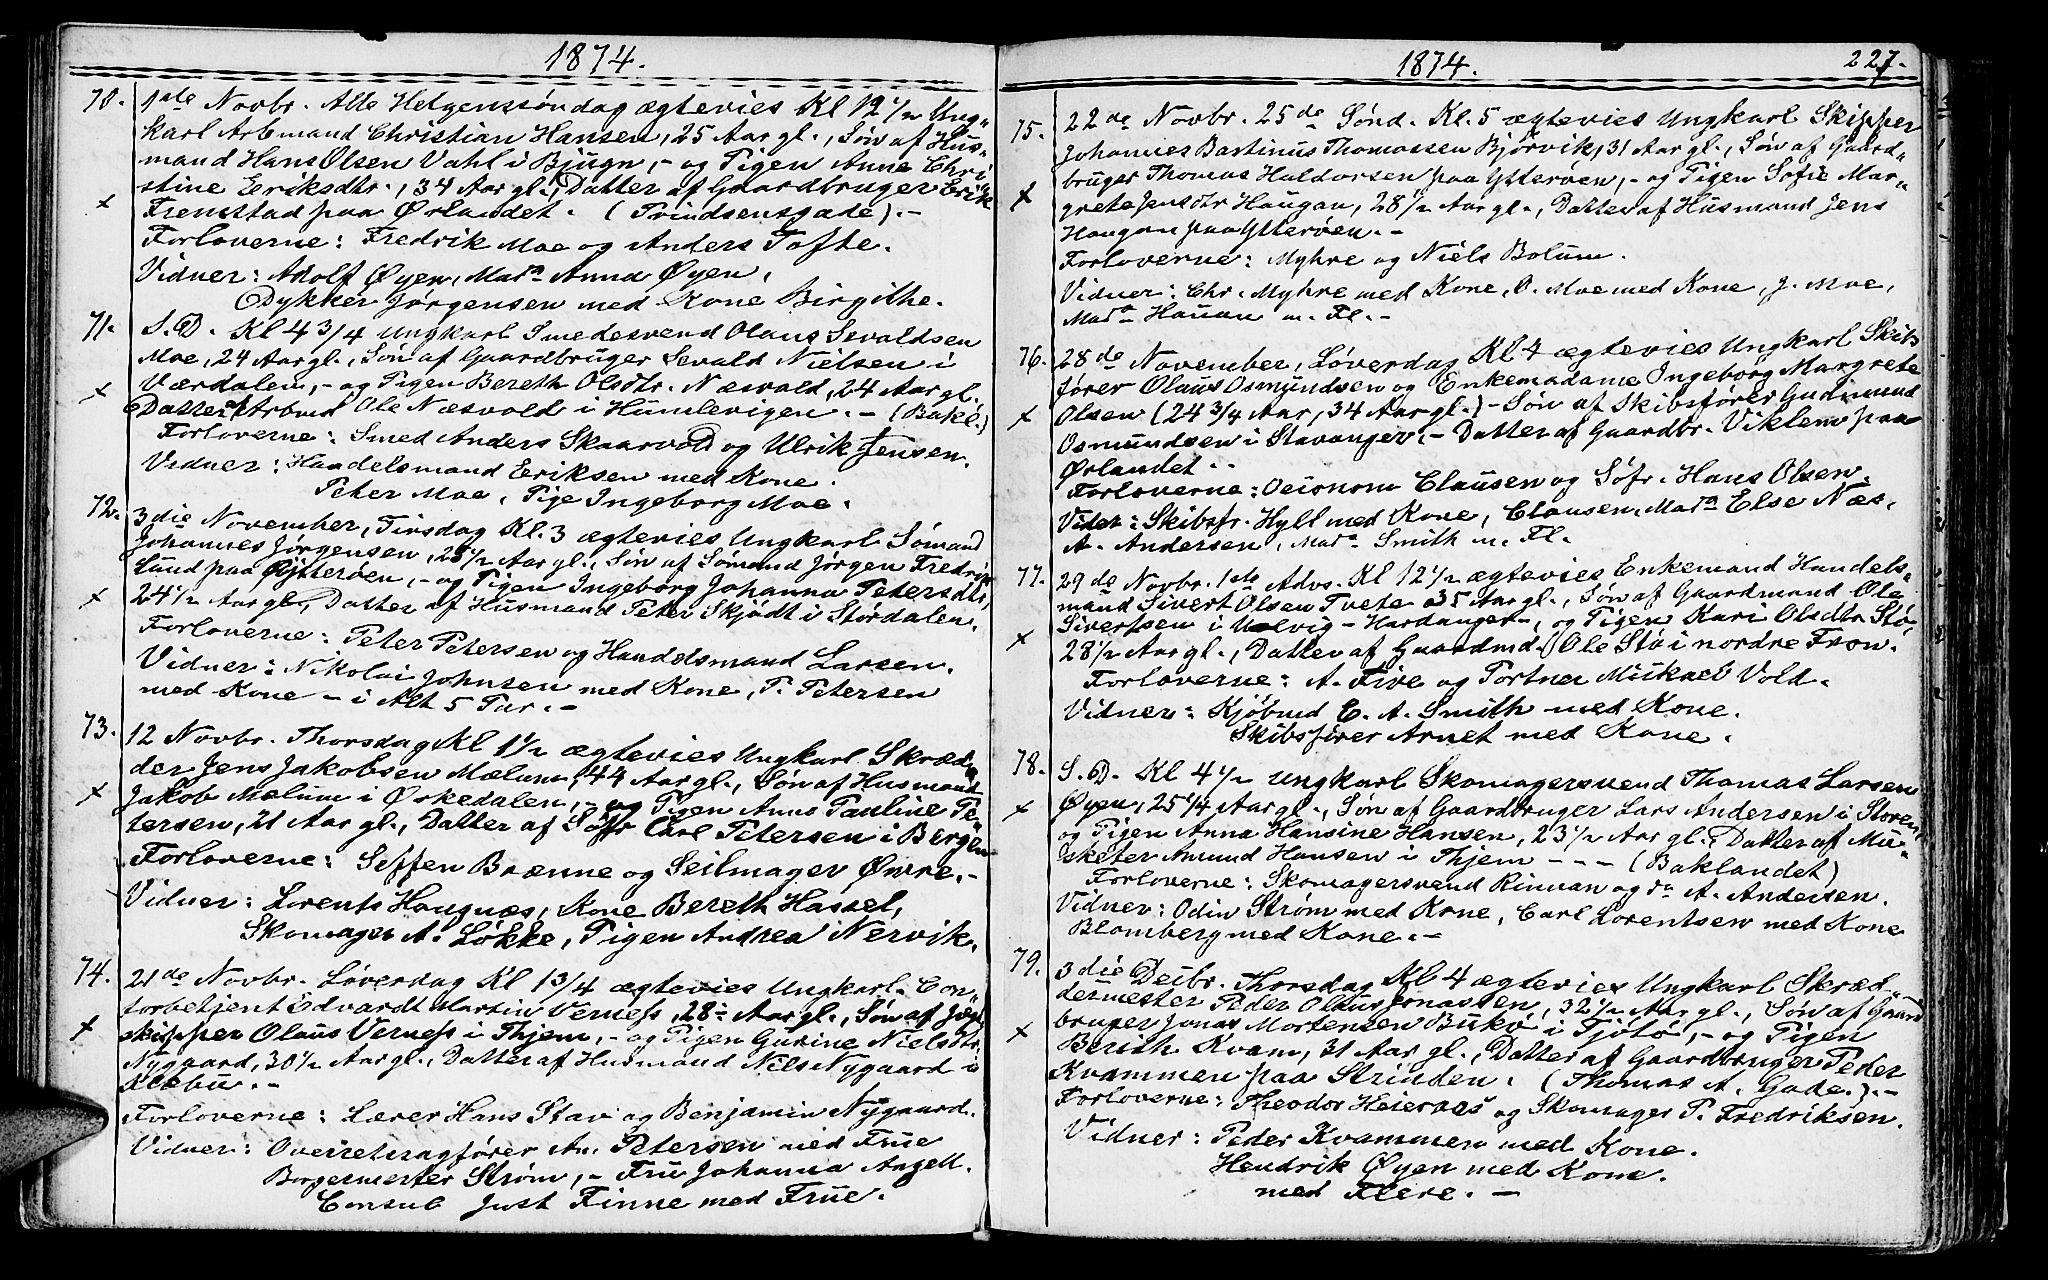 1874.
70. 1ste Novbr. Alle Helgenssøndag ægtevies Kl 12 1/2 Ung-
karl Arbmand Christian Hansen, 25 Aar gl., Søn af Hus-
mand Hans Olsen Vahl i Bjugn, - og Pigen Anne Chri
stine Eeriksdtr., 34 Aar gl., Datter af Gaardbruger Erik
x Fremstad paa Ørlandet. (Trindsensgade). -
Forloverne: Fredrik Moe og Anders Tofte.
Vidner: Adolf Øyen, Mada Anna Øyen,
Dykker Jørgensen med Kone Birgithe.
71. S. D. Kl 4 3/4 Ungkarl Smedesvend Olaus Sevaldsen
Moe, 24 Aar gl., Søn af Gaardbruger Sevald Nielsen i
x Værdalen, - og Pigen Bereth Olsdtr. Næsvold, 24 Aar gl.,
Datter af Arbmd Ole Næsvold i Humlevigen. - (Bakl.)
Forloverne: Smed Anders Skaarvold og Ulrik Jensen.
Vidner: Handelsmand Eeriksen med Kone.
Peter Moe, Pige Ingeborg Moe.
72. 3die November, Tirsdag Kl. 3 ægtevies Ungkarl Sømand
Johannes Jørgensen, 25 1/2 Aar gl., Søn af Sømand Jørgen Fredrik
Lund paa Ytterøen, - og Pigen Ingeborg Johanna Petersdtr,
x 24 1/2 Aar gl., Datter af Husmand Peter Skjødt i Størdalen.
Forloverne: Peter Petersen og Handelsmand Larsen.
Vidner: Nikolai Johnsen med Kone, P. Petersen
med Kone - i Alt 5 Par. -
73. 12 Novbr. Thorsdag Kl 1 1/2 ægtevies Ungkarl Skræd-
der Jens Jakobsen Mælum, 44 Aar gl., Søn af Husmand
x Jakob Mælum i Øskedalen, - og Pigen Anne Pauline Pe-
tersen, 21 Aar gl., Datter af Søfr Carl Petersen i Bergen
Forloverne: Seffen Brænne og Seilmager Øwre. -
Vidner: Lorents Haugnæs, Kone Bereth Hassel,
Skomager A. Løkke, Pigen Andrea Nervik.
74. 21de Novbr. Løverdag Kl 1 3/4 ægtevies Ungkarl Con-
torbetjent Edvardt Martin Verness, 28 Aar gl., Søn af Jægt
x skipper Olaus Verness i Thjem, - og Pigen Gurine Nielsdtr.
Nygaard, 30 1/2 Aar gl., Datter af Husmand Nils Nygaard i
Klæbu. -
Forloverne: Lærer Hans Stav og Benjamin Nygaard.
Vidner: Overretssagfører An. Petersen med Frue
Borgermester Strøm, - Fru Johanna Angell.
Consul Just Finne med Frue.
1874. 227.
75. 22de Novbr. 25de Sønd. Kl. 5 ægtevies Ungkarl Skipper
Johannes Bastinus Thomassen Bjørvik, 31 Aar gl., Søn af Gaard-
bruger Thomas Haldorsen paa Ytterøen, - og Pigen Sofie Mar-
x grete Jensdtr Haugan, 28 1/2 Aar gl., Datter af Husmand Jens
Haugan paa Ytterøen. -
Forloverne: Myhre og Niels Bolum.
Vidner: Chr. Myhre med Kone, O. Moe med Kone, J. Moe,
Mada Hauan m. Fl. -
76. 28de November, Løverdag Kl 4 ægtevies Ungkarl Skibs
fører Olaus Osmundsen og Enkemadame Ingeborg Margrete
x Olsen (24 3/4 Aar, 34 Aar gl.) - Søn af Skibsfører Gudmund
Osmundsen i Stavanger, - Datter af Gaardbr. Viklem paa
Ørlandet. -
Forloverne: Oeconom Clausen og Søfr. Hans Olsen.
Vidn: Skibsfr. Hyll med Kone, Clausen, Mada Else Næs,
A. Andersen, Mada Smith m. Fl.
77. 29de Novbr. 1ste Advs. Kl 12 1/2 ægtevies Enkemand Handels-
mand Sivert Olsen Tvete 35 Aar gl., Søn af Gaardmand Ole
Sivertsen i Ulvig - Hardanger -, og Pigen Kari Olsdtr. Stø,
x 28 1/2 Aar gl., Datter af Gaardmd. Ole Stø i nordre Fron.
Forloverne: A. Five og Portner Mikael Vold.
Vidner: Kjøbmd E. A. Smith med Kone.
Skibsfører Arnet med Kone.
78. S. D. Kl 4 1/2 Ungkarl Skomagersvend Thomas Larsen
x Øyen, 25 1/4 Aar gl., Søn af Gaardbruger Lars Andersen i Støren,
og Pigen Anna Hansine Hansen, 23 1/2 Aar gl., Datter af Mu-
sketer Amund Hansen i Thjem - - - (Baklandet)
Forloverne: Skomagersvend Rinnan og do A. Andersen.
Vidner: Odin Strøm med Kone, Carl Lorentsen med Kone
Blomberg med Kone. -
79. 3die Decbr. Thorsdag Kl 4 ægtevies Ungkarl Skræd-
dermester Peder Olaus Jonassen, 32 1/2 Aar gl., Søn af Gaard
bruger Jonas Mortensen Bukø i Tjøtø, - og Pigen
x Berith Kvam, 31 Aar gl., Datter af Gaardbruger Peder
Kvammen paa Strinden. (Thomas A. Gade.). -
Forloverne: Theodor Heieraas og Skomager P. Fredriksen.
Vidner: Peder Kvammen med Kone.
Hendrik Øyen med Kone.
med Flere. -